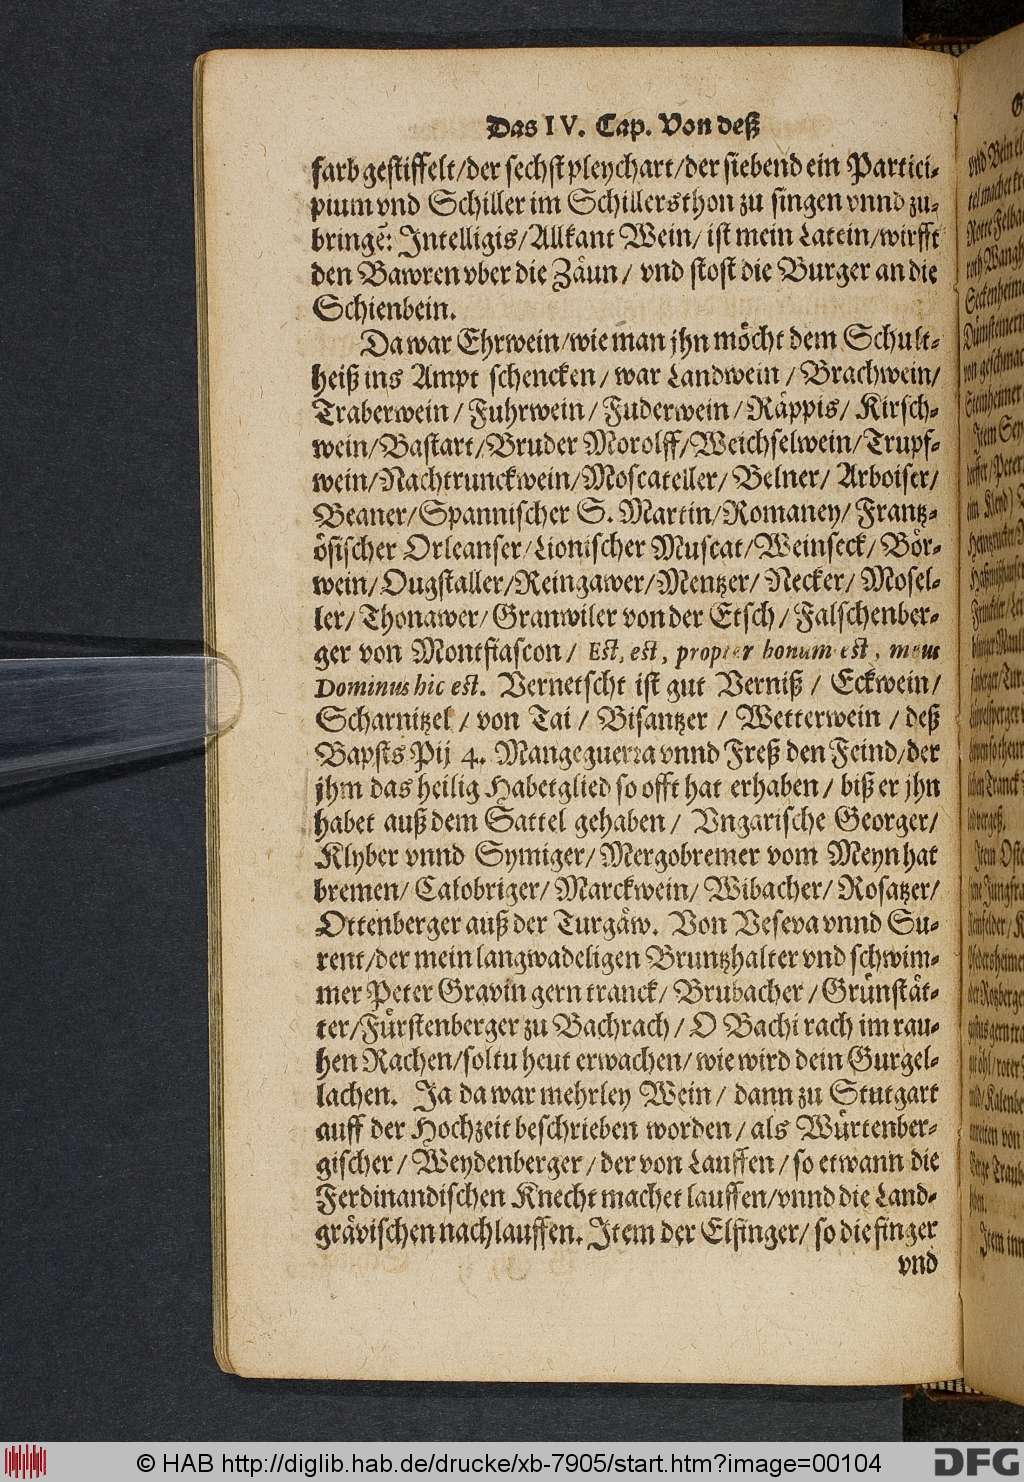 Das IV. Cap. Von deß
farb gestiffelt/der sechst pleychart/der siebend ein Partici-
pium vnd Schiller im Schillersthon zu singen vnnd zu-
bringẽ: Intelligis/Allkant Wein/ ist mein Latein/wirfft
den Bawren vber die Zäun/ vnd stost die Burger an die
Schienbein.
Da war Ehrwein/wie man jhn möcht dem Schult-
heiß ins Ampt schencken/ war Landwein / Brachwein/
Traberwein / Fuhrwein / Fuderwein / Räppis/ Kirsch-
wein/Bastart/Bruder Morolff/Weichselwein/Trupf-
wein/Nachtrunckwein/Moscateller/ Belner/ Arboiser/
Beaner/Spannischer S. Martin/Romaney/ Frantz-
ösischer Orleanser/Lionischer Muscat/Weinseck/ Bör-
wein/Ougstaller/Reingawer/Mentzer/ Necker/ Mosel-
ler/ Thonawer/ Granwiler von der Etsch/ Falschenber-
ger von Montfiascon/ Est, est, propter bonum est, meus
Dominus hic est. Vernetscht ist gut Verniß / Eckwein/
Scharnitzel / von Tai / Bisantzer / Wetterwein / deß
Bapsts Pij 4. Mangeguerra vnnd Freß den Feind/der
jhm das heilig Habetglied so offt hat erhaben / biß er jhn
habet auß dem Sattel gehaben / Vngarische Georger/
Klyber vnnd Symiger/ Mergobremer vom Meyn hat
bremen/ Calobriger/ Marckwein/ Wibacher/ Rosatzer/
Ottenberger auß der Turgäw. Von Veseva vnnd Su-
rent/der mein langwadeligen Bruntzhalter vnd schwim-
mer Peter Gravin gern tranck/ Brubacher / Grünstät-
ter/Fürstenberger zu Bachrach/ O Bachi rach im rau-
hen Rachen/soltu heut erwachen/ wie wird dein Gurgel-
lachen. Ja da war mehrley Wein / dann zu Stutgart
auff der Hochzeit beschrieben worden/ als Würtenber-
gischer / Weydenberger / der von Lauffen / so etwann die
Ferdinandischen Knecht machet lauffen/vnnd die Land-
grävischen nachlauffen. Item der Elfinger/ so die finger
vnd
© HAB http://diglib.hab.de/drucke/xb-7905/start.htm?image=00104
DFG